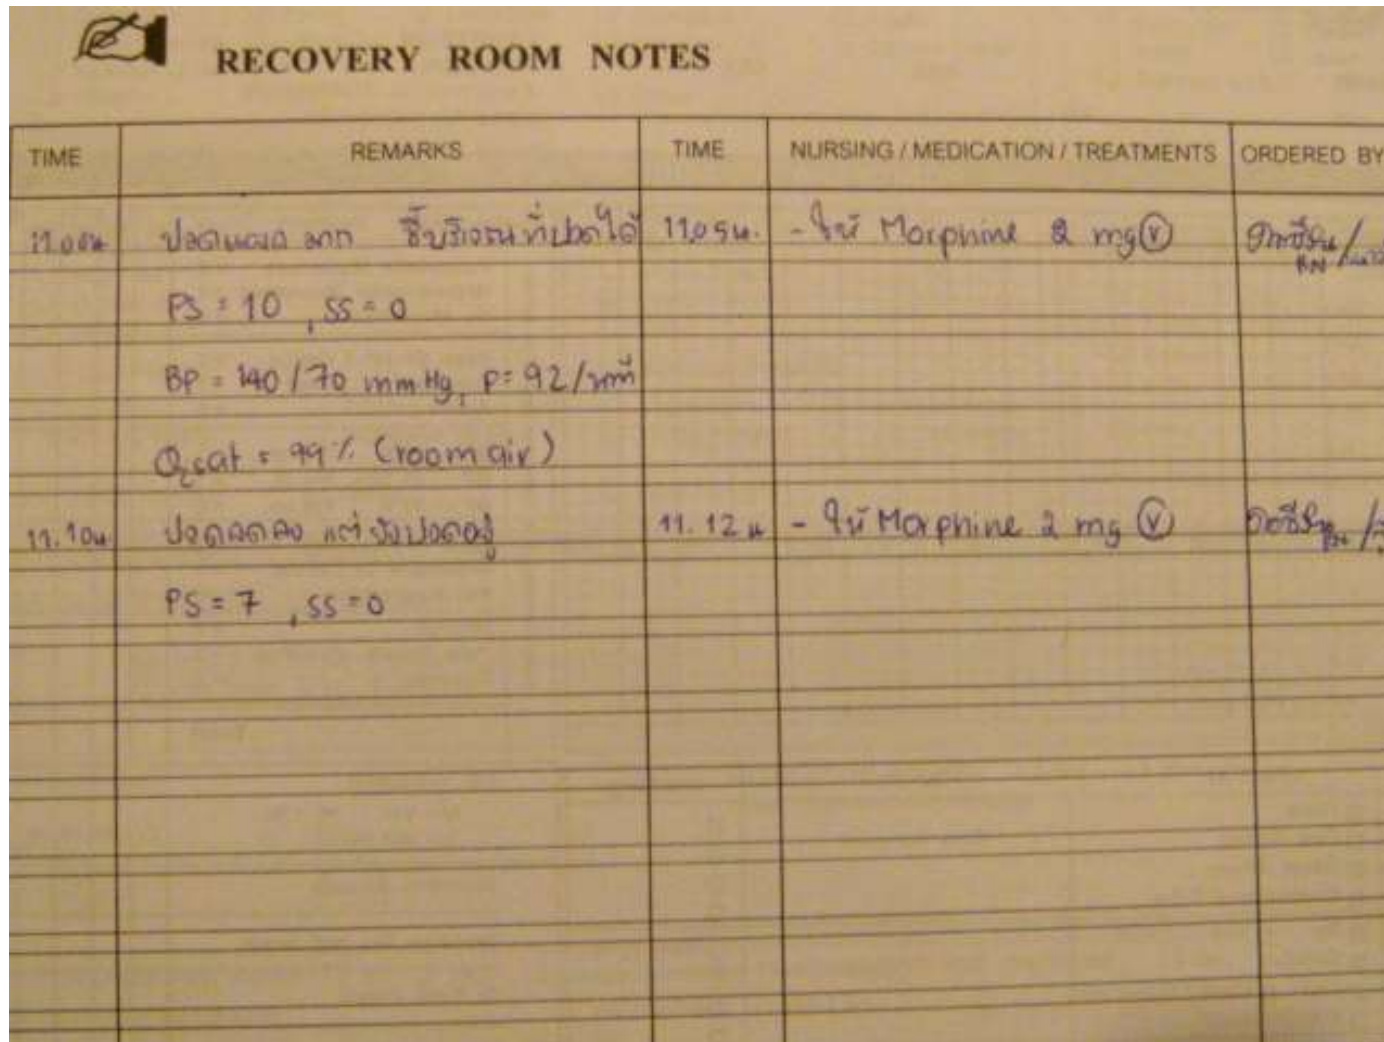 RECOVERY ROOM NOTES
TIME REMARKS TIME NURSING / MEDICATION / TREATMENTS ORDERED BY
ปวดแผล มาก ชี้บริเวณที่ปวดได้ 11.05น. - ให้ Morphine 2 mg Ⓥ
PS = 10 , SS = 0
BP = 140 / 70 mmHg, P = 92/นาที
O₂sat = 99 % (room air)
11.10น. ปวดลดลง แต่ยังปวดอยู่ 11.12 น - ให้ Morphine 2 mg Ⓥ
PS = 7 , SS = 0